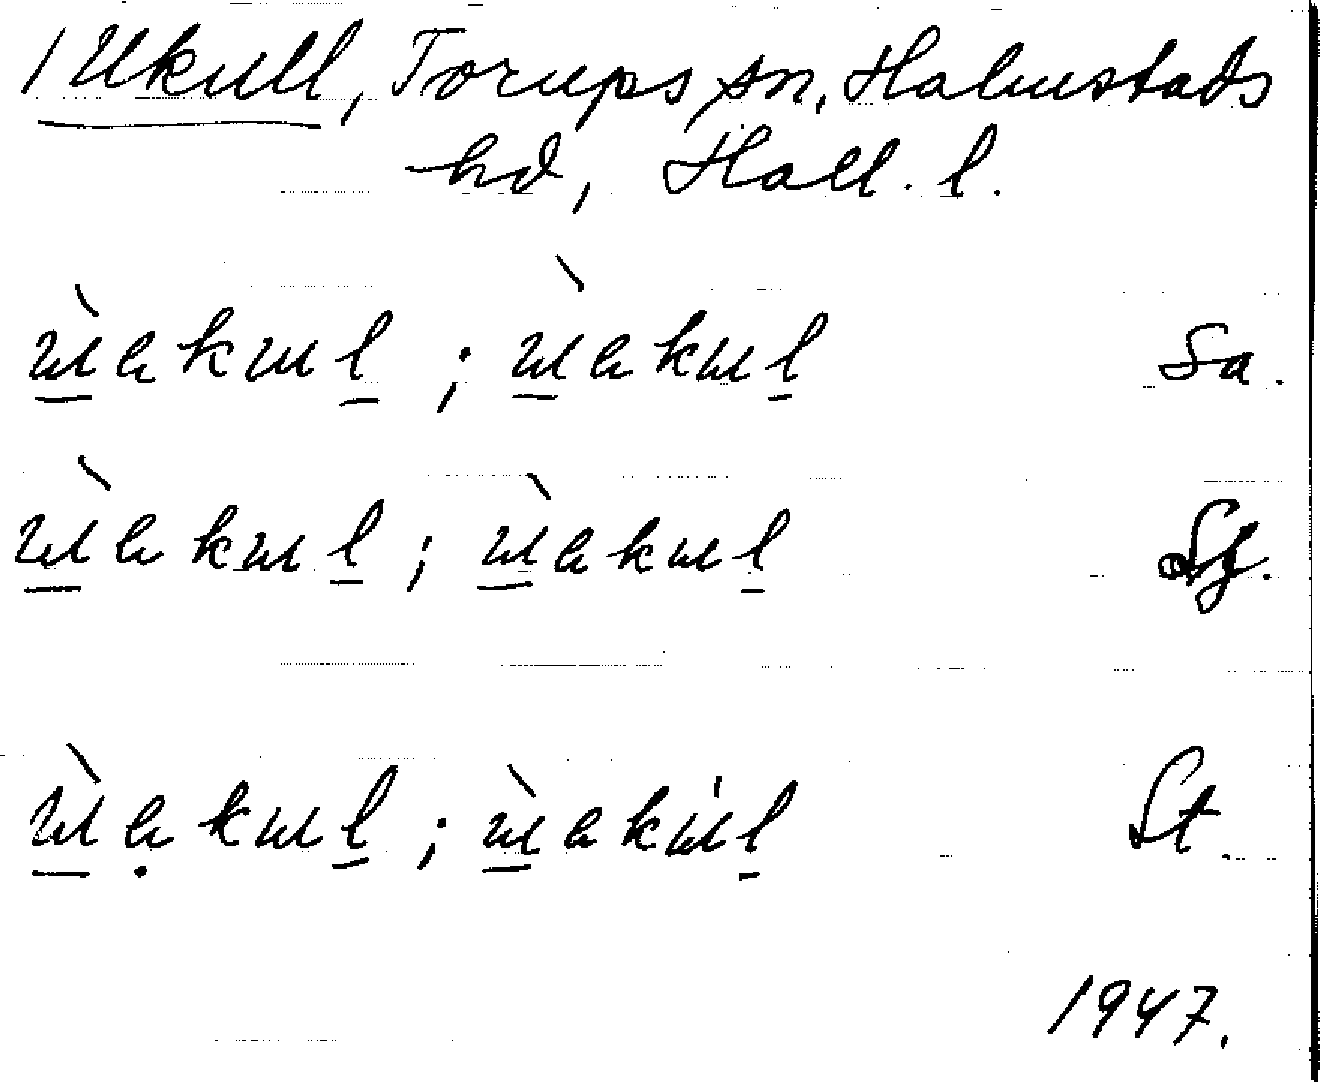 1 Ukull, Torups sn, Halmstads
hd, Hall. l.
ùakul ; ùakul Sa.
ùakul ; ùakul
ùakul ; ùakúl St.
1947.